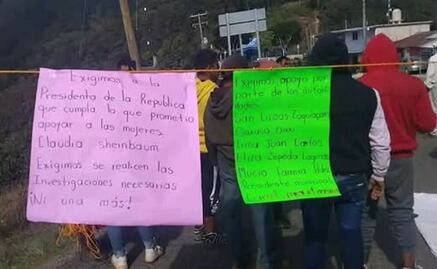 Exigimos a la
Presidenta de la República
que cumpla lo que prometio
apoyar a las mujeres.
Claudia sheinbaum
Exigimos se realicen las
Investigaciones necesarias
¡Ni una más!
Exigimos apoyo por
parte de las autori
dades.
Juan Lucas
Irma Juan Carlos
Eliza Zepeda Lagunas
Mucio
Presidente municipal